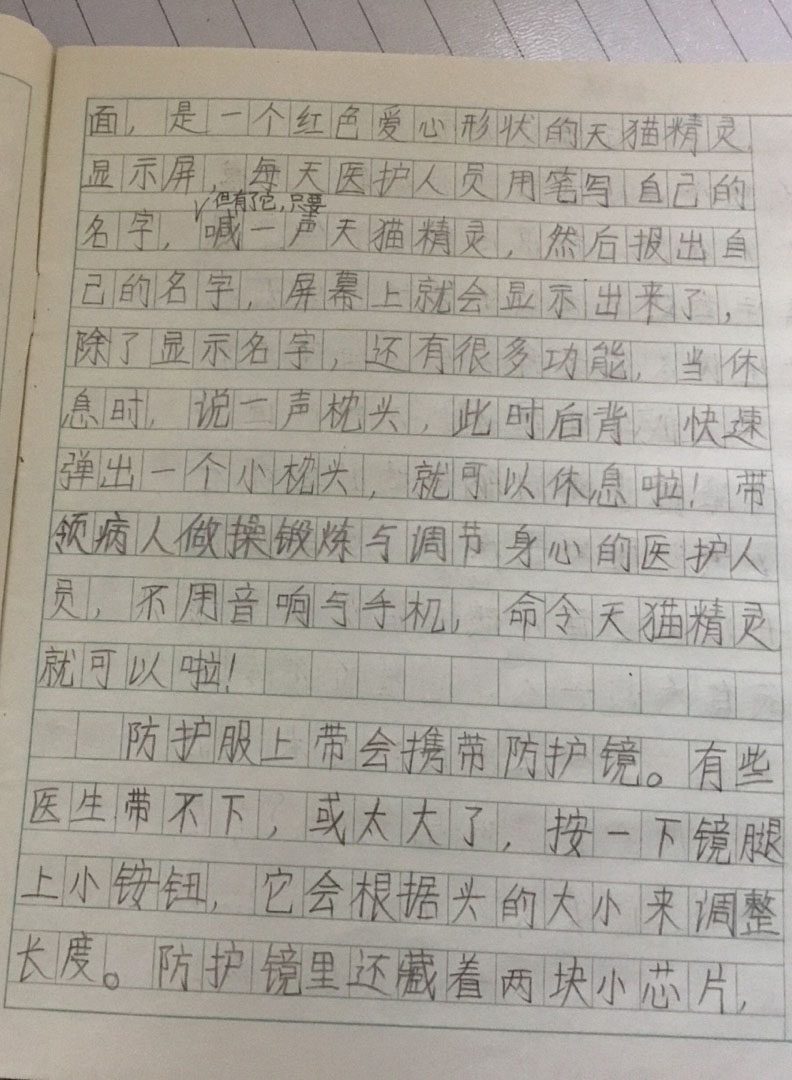 面，是一个红色爱心形状的天猫精灵
显示屏，每天医护人员用笔写自己的
但有了它，只要
名字，喊一声天猫精灵，然后报出自
己的名字，屏幕上就会显示出来了，
除了显示名字，还有很多功能，当休
息时，说一声枕头，此时后背快速
弹出一个小枕头，就可以休息啦！带
领病人做操锻炼与调节身心的医护人
员，不用音响与手机，命令天猫精灵
就可以啦！
防护服上带会携带防护镜。有些
医生带不下，或太大了，按一下镜腿
上小铵钮，它会根据头的大小来调整
长度。防护镜里还藏着两块小芯片，